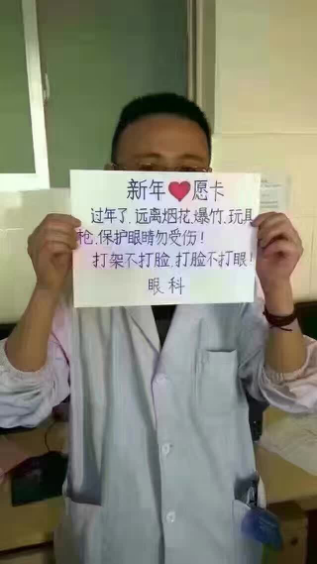 新年❤愿卡
过年了.远离烟花.爆竹.玩具
枪.保护眼睛勿受伤!
打架不打脸.打脸不打眼!
眼科